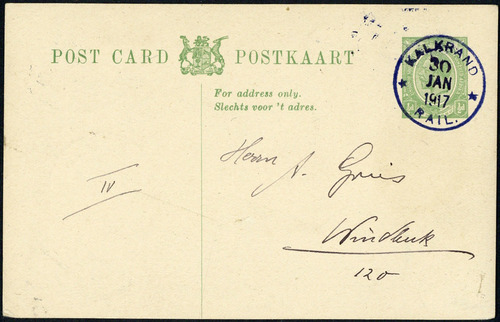 POST CARD POSTKAART
For address only.
Slechts voor 't adres.
KALKRAND
30
JAN
1917
RAIL.
IV
Herrn A. Gries
Windhuk
120